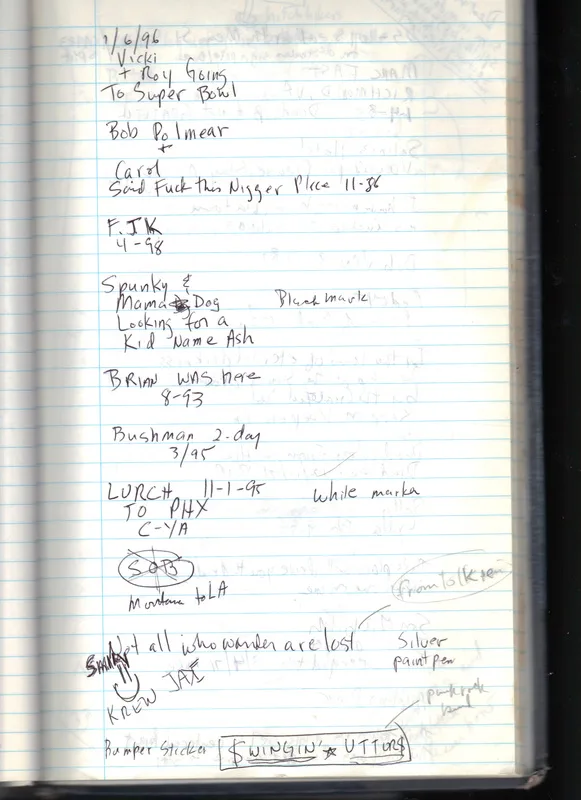 1/6/96
Vicki
+ Roy Going
To Super Bowl
Bob Palmear
+
Carol
Said Fuck this Nigger Place 11-86
F.JK
4-98
Spunky &
Mama Dog Black mark
Looking for a
Kid Name Ash
BRIAN WAS HERE
8-93
Bushman 2-day
3/95
LURCH 11-1-95 while marka
TO PHX
C-YA
SOB
Montana to LA
(from tolkien)
Not all who wander are lost Silver
paint pen
KREW JAX
punk rock
band
Bumper Sticker $WINGIN' ☆ UTTUR$